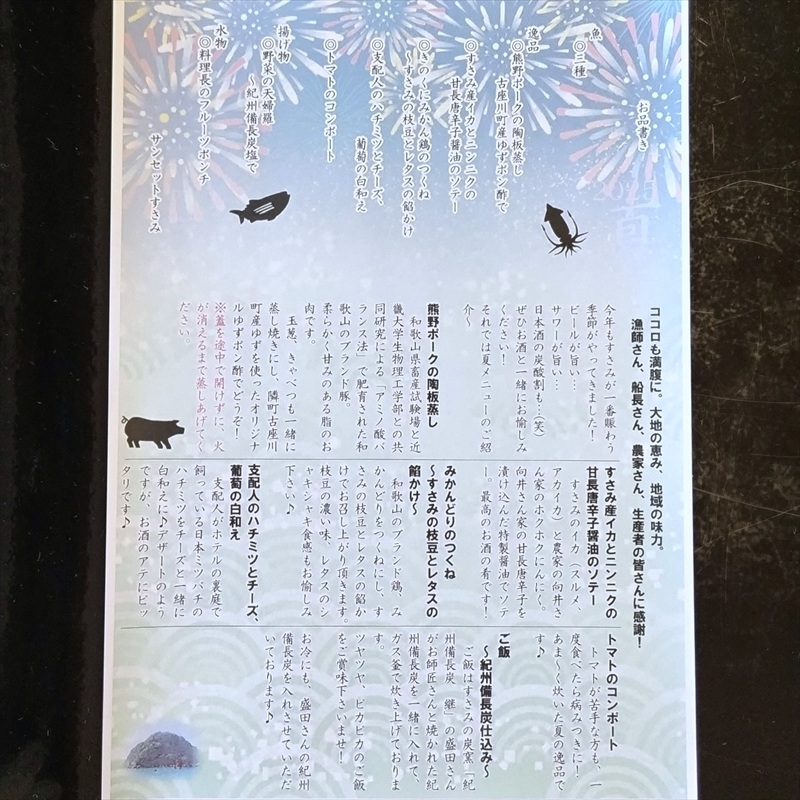 お品書き
魚
◎三種
逸品
◎熊野ポークの陶板蒸し
古座川町産ゆずポン酢で
◎すさみ産イカとニンニクの
甘長唐辛子醤油のソテー
◎きのくにみかん鶏のつくね
～すさみの枝豆とレタスの餡かけ
◎支配人のハチミツとチーズ、
葡萄の白和え
◎トマトのコンポート
揚げ物
◎野菜の天婦羅
～紀州備長炭塩で
水物
◎料理長のフルーツポンチ
サンセットすさみ
夏
ココロも満腹に。大地の恵み、地域の味力。
漁師さん、船長さん、農家さん、生産者の皆さんに感謝！
今年もすさみが一番賑わう
季節がやってきました！
ビールが旨い…
サワーが旨い…
日本酒の炭酸割も…（笑）
ぜひお酒と一緒にお愉しみ
ください！
それでは夏メニューのご紹
介～
熊野ポークの陶板蒸し
和歌山県畜産試験場と近
畿大学生物理工学部との共
同研究による「アミノ酸バ
ランス法」で肥育された和
歌山のブランド豚。
柔らかく甘みのある脂のお
肉です。
玉葱、きゃべつも一緒に
蒸し焼きにし、隣町古座川
町産ゆずを使ったオリジナ
ルゆずポン酢でどうぞ！
※蓋を途中で開けずに、火
が消えるまで蒸しあげてく
ださい。
すさみ産イカとニンニクの
甘長唐辛子醤油のソテー
すさみのイカ（スルメ、
アカイカ）と農家の向井さ
ん家のホクホクにんにく。
向井さん家の甘長唐辛子を
漬け込んだ特製醤油でソテ
ー。最高のお酒の肴です！
みかんどりのつくね
～すさみの枝豆とレタスの
餡かけ～
和歌山のブランド鶏、み
かんどりをつくねにし、す
さみの枝豆とレタスの餡か
けでお召し上がり頂きます。
枝豆の濃い味、レタスのシ
ャキシャキ食感もお愉しみ
下さい♪
支配人のハチミツとチーズ、
葡萄の白和え
支配人がホテルの裏庭で
飼っている日本ミツバチの
ハチミツをチーズと一緒に
白和えに♪デザートのよう
ですが、お酒のアテにピッ
タリです♪
トマトのコンポート
トマトが苦手な方も、一
度食べたら病みつきに！
あま～く炊いた夏の逸品で
す♪
ご飯
～紀州備長炭仕込み～
ご飯はすさみの炭業「紀
州備長炭　継」の盛田さん
がお師匠さんと焼かれた紀
州備長炭を一緒に入れて、
ガス釜で炊き上げておりま
す。
ツヤツヤ、ピカピカのご飯
をご賞味下さいませ！
お冷にも、盛田さんの紀州
備長炭を入れさせていただ
いております♪